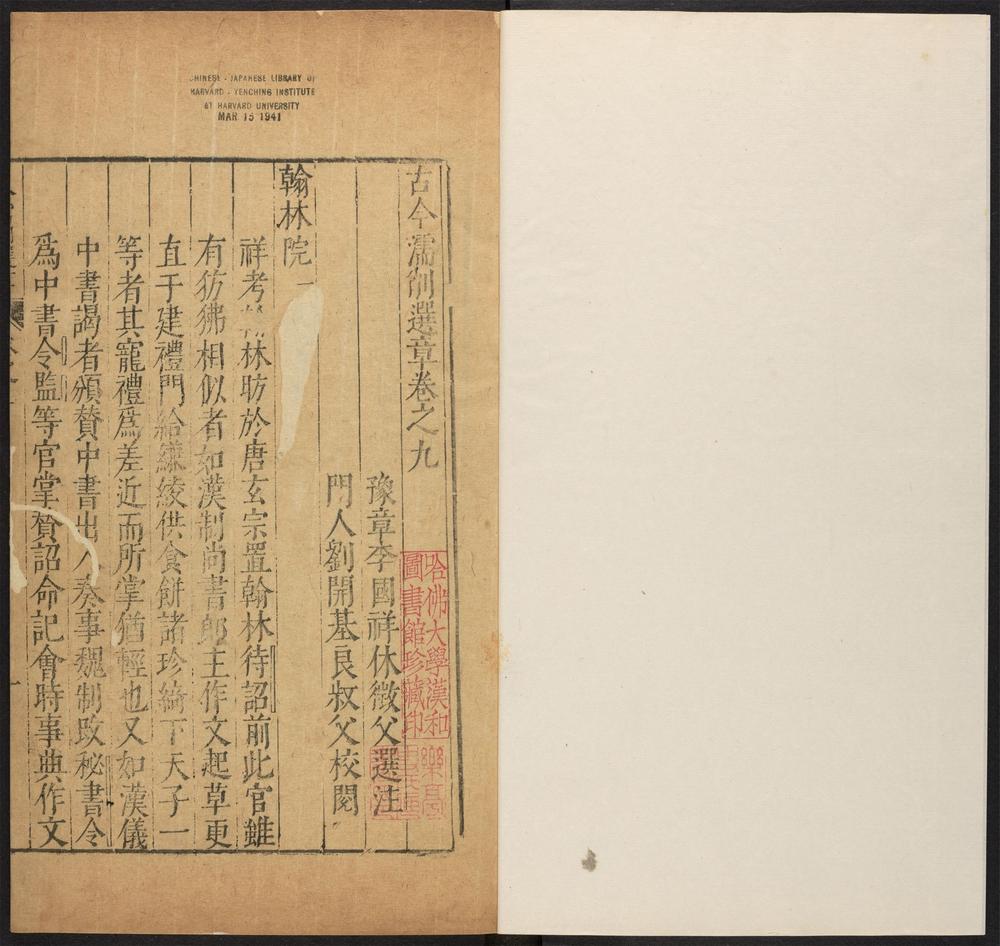 CHINESE - JAPANESE LIBRARY OF
HARVARD - YENCHING INSTITUTE
AT HARVARD UNIVERSITY
MAR 15 1941
古今濡削選章卷之九
豫章李國祥休徵父選注
門人劉開基良叔父校閱
哈佛大學漢和
圖書館珍藏印
翰林院
祥考翰林昉於唐玄宗置翰林待詔前此官雖
有彷彿相似者如漢制尚書郎主作文起草更
直于建禮門給縑綾供食餅諸珍綺下天子一
等者其寵禮爲差近而所掌猶輕也又如漢儀
中書謁者頒贊中書出入奏事魏制改秘書令
爲中書令監等官掌贊詔命記會時事典作文